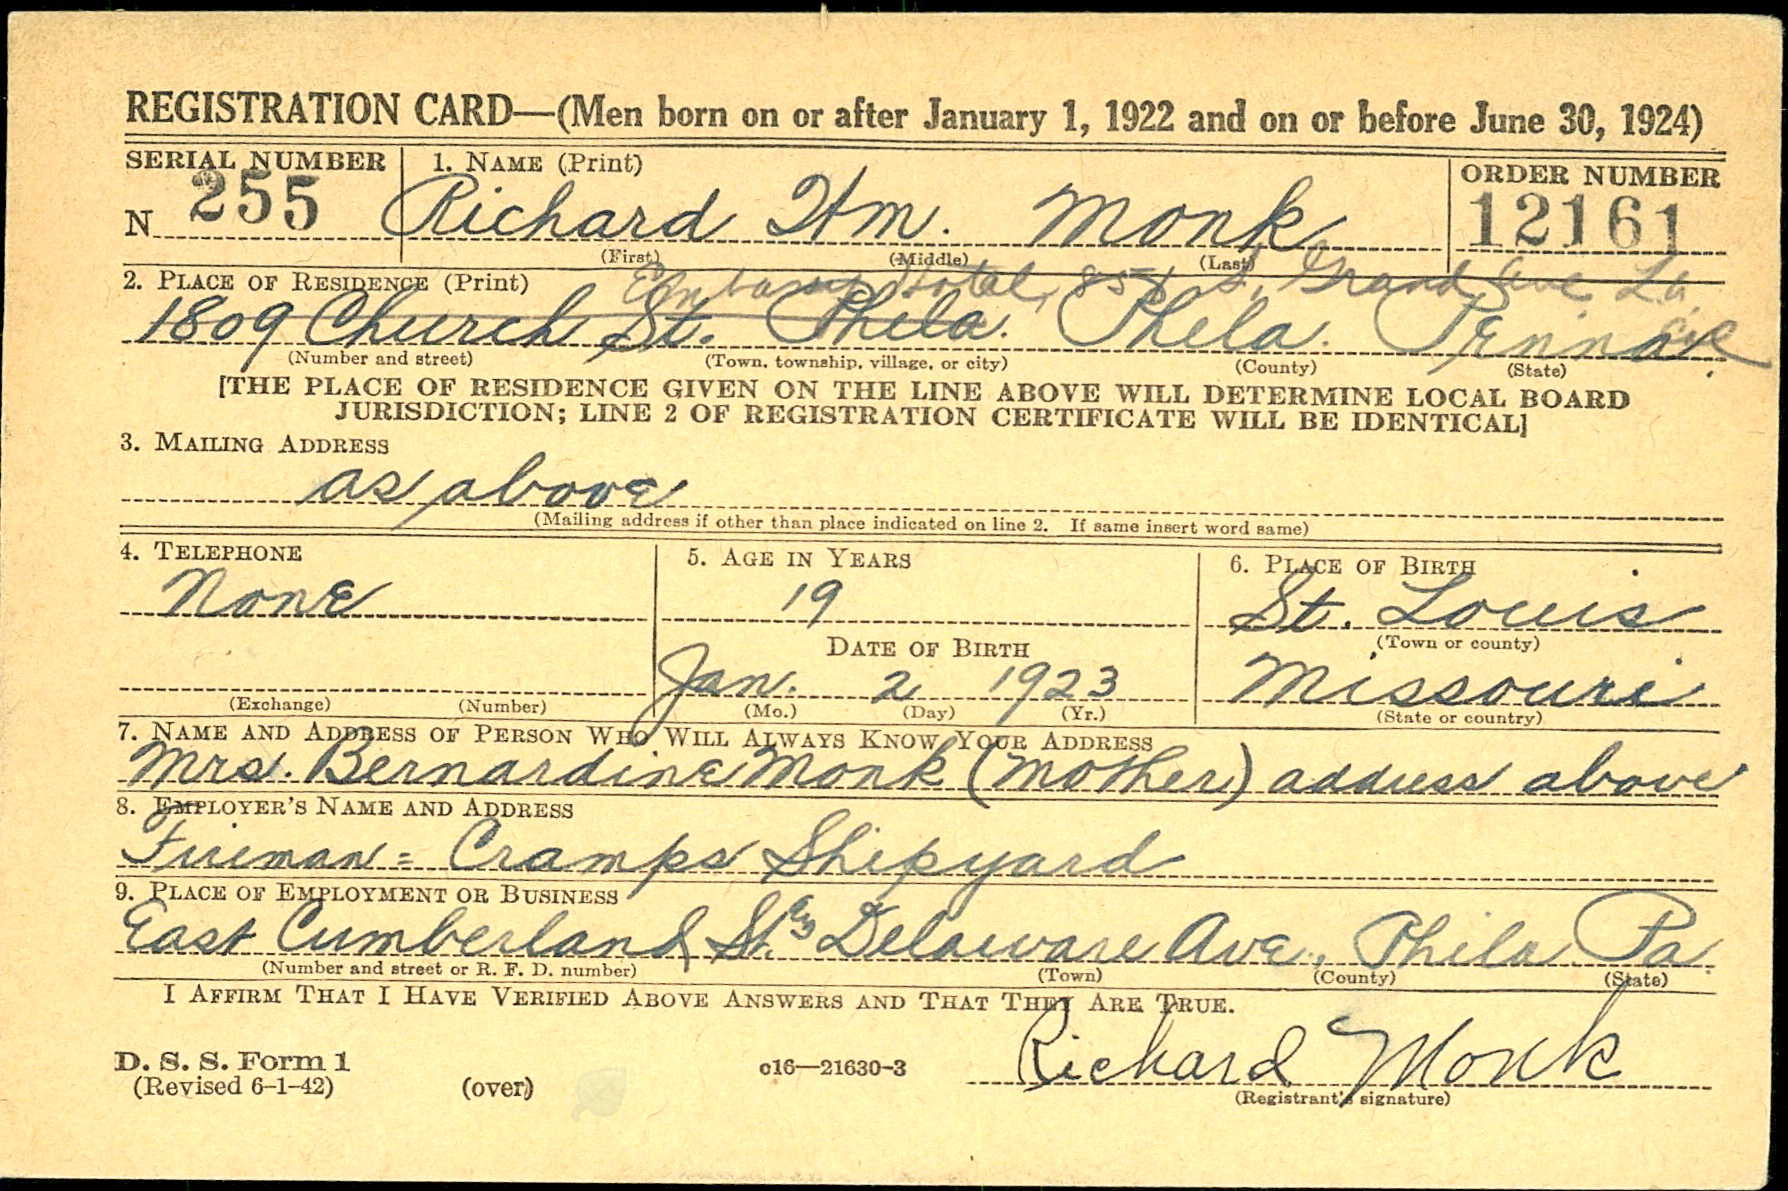 REGISTRATION CARD—(Men born on or after January 1, 1922 and on or before June 30, 1924)
SERIAL NUMBER
1. NAME (Print)
ORDER NUMBER
N 255
Richard Wm. Monk
12161
(First) (Middle) (Last)
2. PLACE OF RESIDENCE (Print)
Embassy Hotel, 851 S. Grand Ave L.A.
Cal
1809 Church St. Phila. Phila. Penna.
(Number and street) (Town, township, village, or city) (County) (State)
[THE PLACE OF RESIDENCE GIVEN ON THE LINE ABOVE WILL DETERMINE LOCAL BOARD
JURISDICTION; LINE 2 OF REGISTRATION CERTIFICATE WILL BE IDENTICAL]
3. MAILING ADDRESS
as above
(Mailing address if other than place indicated on line 2. If same insert word same)
4. TELEPHONE
5. AGE IN YEARS
6. PLACE OF BIRTH
None
19
St. Louis
(Town or county)
DATE OF BIRTH
Jan. 2 1923
Missouri
(Exchange) (Number)
(Mo.) (Day) (Yr.)
(State or country)
7. NAME AND ADDRESS OF PERSON WHO WILL ALWAYS KNOW YOUR ADDRESS
Mrs. Bernardine Monk (Mother) address above
8. EMPLOYER'S NAME AND ADDRESS
Fireman = Cramps Shipyard
9. PLACE OF EMPLOYMENT OR BUSINESS
East Cumberland St. & Delaware Ave., Phila Pa.
(Number and street or R. F. D. number) (Town) (County) (State)
I AFFIRM THAT I HAVE VERIFIED ABOVE ANSWERS AND THAT THEY ARE TRUE.
D. S. S. Form 1
(Revised 6-1-42)
(over)
c16—21630-3
Richard Monk
(Registrant's signature)